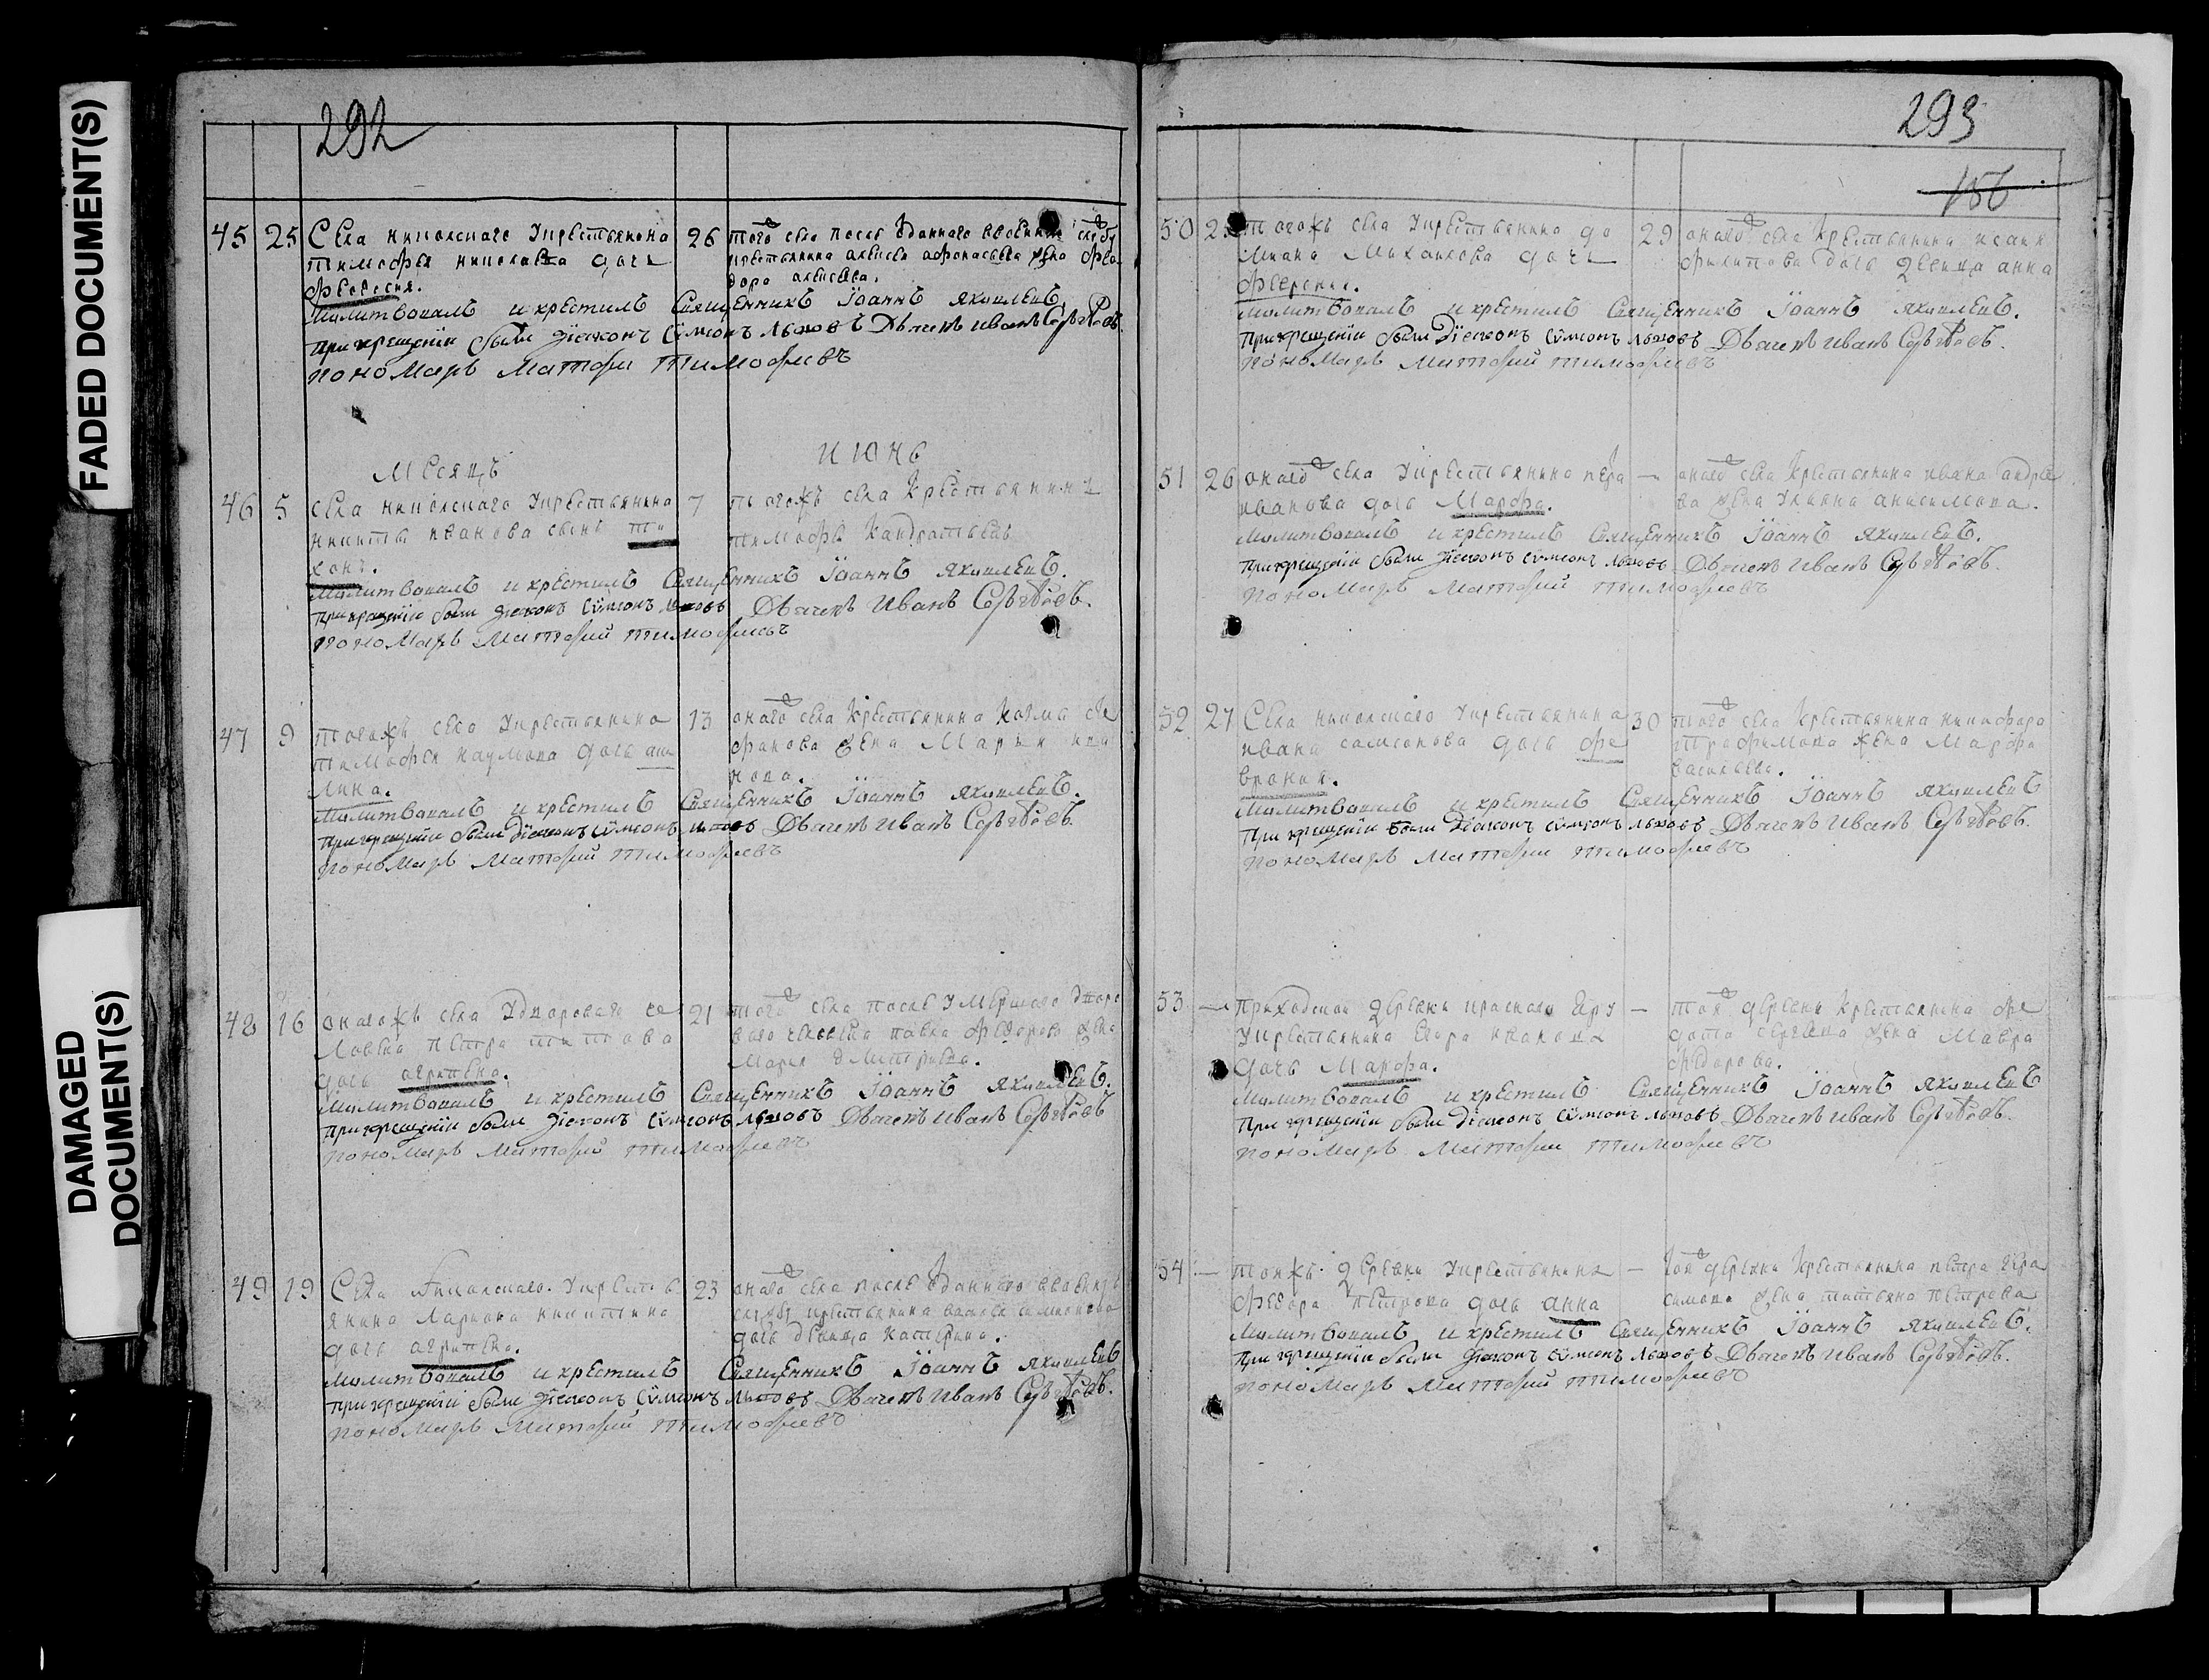 FADED DOCUMENT(S)
DAMAGED
DOCUMENT(S)
292
45 25 Села никольского Укрестьянина
тимофея николаева дочь
26 того села после Отданного
крестьянина алексея афонасьева жена Фео
дора алексеева.
Молитвовалъ и крестилъ Священникъ Iоаннъ Яковлевъ.
При крещенiи были Дiаконъ Сvмеонъ Львовъ Дьячекъ Иванъ
пономарь Матфей тимофеевъ
Месяцъ ИЮНЬ
46 5 села никольского Укрестьянина
никиты иванова сынъ ти
хонъ.
7 тогожъ села Крестьянинъ
тимофей Кандратьевъ
Молитвовалъ и крестилъ Священникъ Iоаннъ Яковлевъ.
При крещенiи были Дiаконъ Сvмеонъ Львовъ Дьячекъ Иванъ
пономарь Матфей тимофеевъ
47 9 тогожъ села Укрестьянина
тимофея наумова дочь аки
лина.
13 оного села Крестьянина Козмы сте
фанова жена Марья ива
нова.
Молитвовалъ и крестилъ Священникъ Iоаннъ Яковлевъ.
При крещенiи были Дiаконъ Сvмеонъ Львовъ Дьячекъ Иванъ
пономарь Матфей тимофеевъ
48 16 оногожъ села Удворового че
ловека петра титова
дочь агрипена.
21 того села после Умершаго Дворо
ваго человека павла Федорова жена
Марья дмитриева.
Молитвовалъ и крестилъ Священникъ Iоаннъ Яковлевъ.
При крещенiи были Дiаконъ Сvмеонъ Львовъ Дьячекъ Иванъ
пономарь Матфей тимофеевъ
49 19 Села Никольского Укресть
янина Лариона никитина
дочь агрипена.
23 оного села после Отданного
крестьянина
дочь девица катерина.
Молитвовалъ и крестилъ Священникъ Iоаннъ Яковлевъ
При крещенiи были Дiаконъ Сvмеонъ Львовъ Дьячекъ Иванъ
пономарь Матфей тимофеевъ
293
156
50 тогожъ села Укрестьянина де
миана Михаилова дочь
29 оного села Крестьянина исаия
филипова дочь Девица анна
Молитвовалъ и крестилъ Священникъ Iоаннъ Яковлевъ.
При крещенiи были Дiаконъ Сvмеонъ Львовъ Дьячекъ Иванъ
пономарь Матфей тимофеевъ
51 26 оного села Укрестьянина
иванова дочь Марфа.
— оного села Крестьянина ивана андрее
ва жена Улияна анисимова.
Молитвовалъ и крестилъ Священникъ Iоаннъ Яковлевъ.
При крещенiи были Дiаконъ Сvмеонъ Львовъ Дьячекъ Иванъ
пономарь Матфей тимофеевъ
52 27 Села никольского Укрестьянина
ивана самсонова дочь фе
врониа.
30 того села Крестьянина никифора
трофимова жена Марфа
васильева.
Молитвовалъ и крестилъ Священникъ Iоаннъ Яковлевъ
При крещенiи были Дiаконъ Сvмеонъ Львовъ Дьячекъ Иванъ
пономарь Матфей тимофеевъ
53 — Приходской Деревни
Укрестьянина Егора иванова
дочь Марфа.
— той деревни Крестьянина фе
дота сергеева жена Мавра
федорова.
Молитвовалъ и крестилъ Священникъ Iоаннъ Яковлевъ
При крещенiи были Дiаконъ Сvмеонъ Львовъ Дьячекъ Иванъ
пономарь Матфей тимофеевъ
54 — тоижъ Деревни Укрестьянина
Федора петрова дочь анна
— той деревни Крестьянина петра гера
симова жена татьяна петрова
Молитвовалъ и крестилъ Священникъ Iоаннъ Яковлевъ.
При крещенiи были Дiаконъ Сvмеонъ Львовъ Дьячекъ Иванъ
пономарь Матфей тимофеевъ